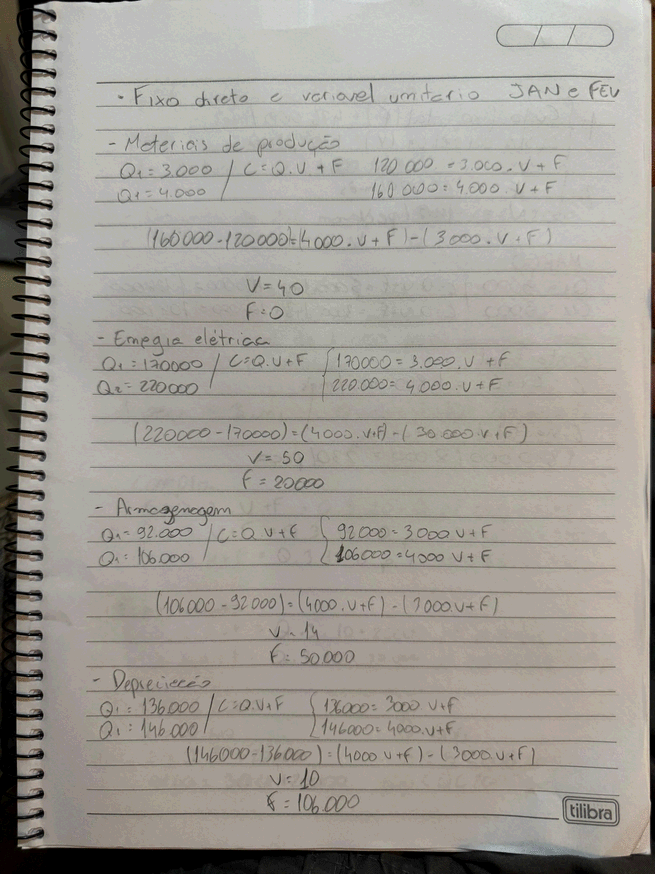 • Fixo direto e variavel unitario JAN e FEV
- Materiais de produção
Q1 = 3.000 / C = Q.V + F 120 000 = 3.000. V + F
Q1 = 4.000 160 000 = 4.000. V + F
(160000 - 120000) = (4000. V + F) - (3000. V + F)
V = 40
F = 0
- Emegia elétrica
Q1 = 170000 / C = Q.V + F { 170000 = 3.000. V + F
Q2 = 220000 220.000 = 4000. V + F
(220000 - 170000) = (4000. V + F) - (30.000 V + F)
V = 50
F = 20000
- Armazenagem
Q1 = 92.000 / C = Q. V + F { 92000 = 3000 V + F
Q1 = 106.000 106000 = 4000 V + F
(106000 - 92000) = (4000. V + F) - (7000. V + F)
V = 14
F = 50000
- Depreciação
Q1 = 136.000 / C = Q.V + F { 136000 = 3000 V + F
Q1 = 146.000 146000 = 4000. V + F
(146000 - 136000) = (4000 V + F) - (3000. V + F)
V = 10
F = 106.000
tilibra